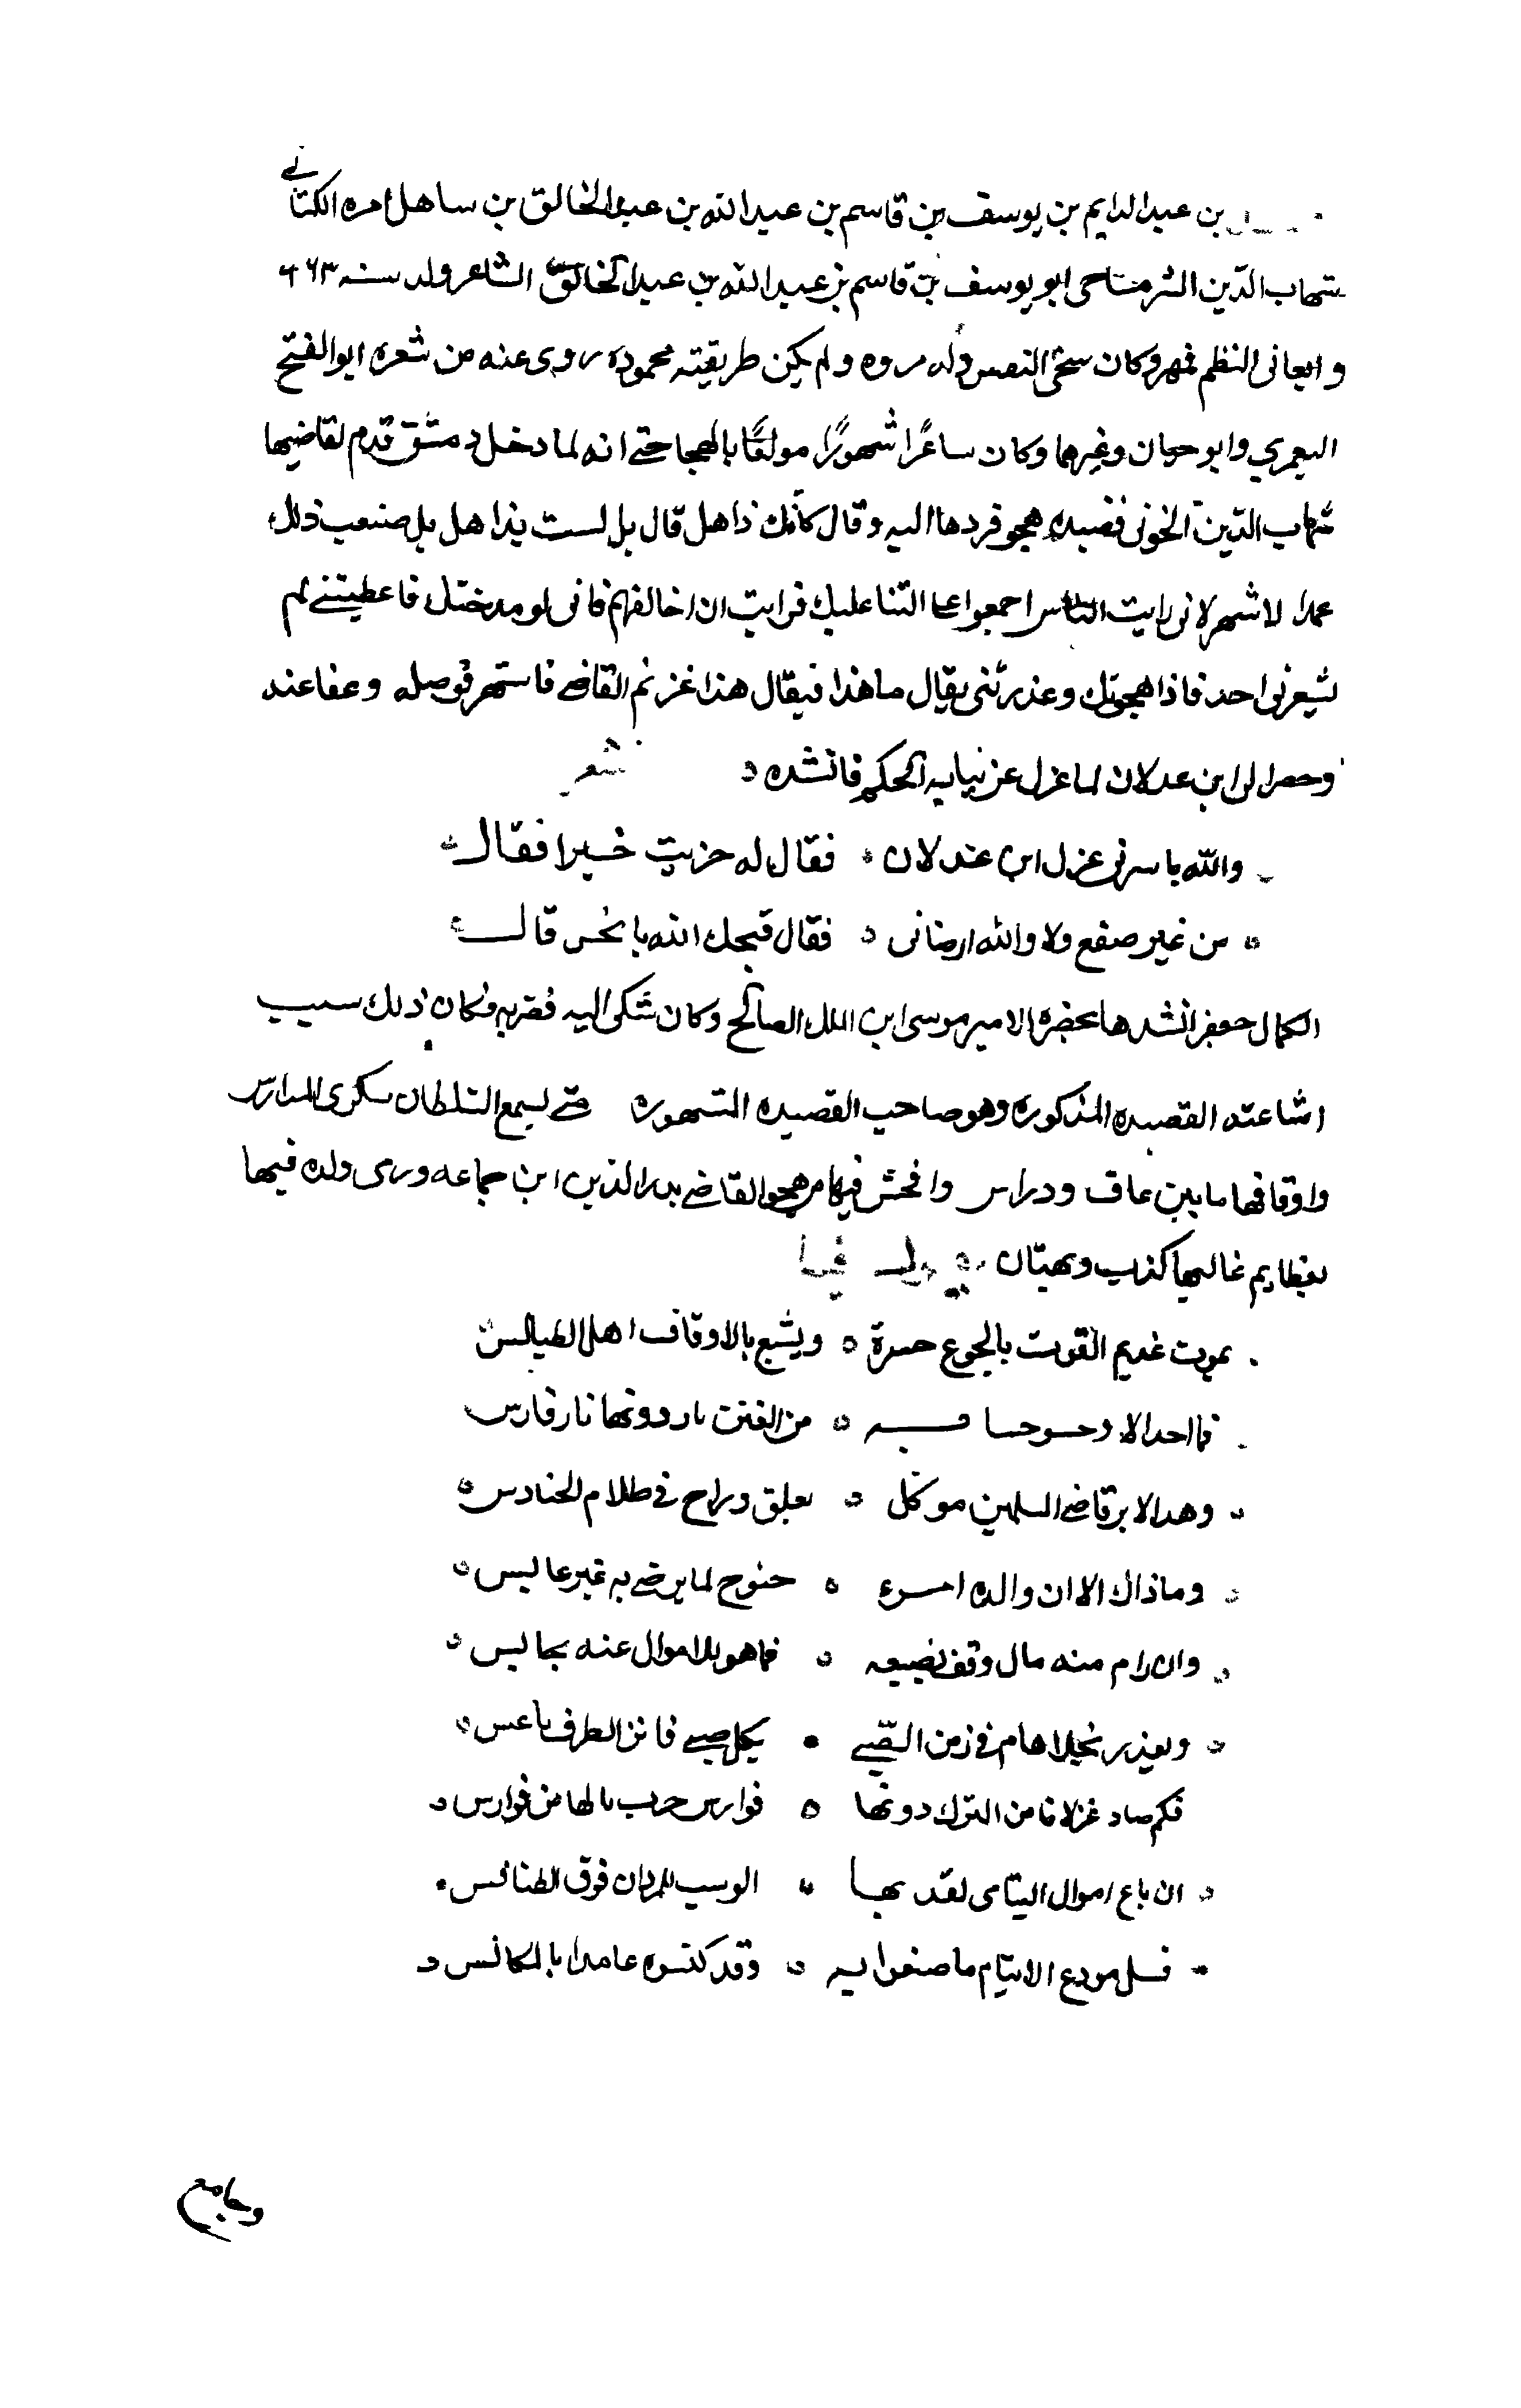 بن عبد الدايم بن يوسف بن قاسم بن عبد الله بن عبد الخالق بن ساهل امره الكتاني
شهاب الدين الشرمساحي ابو يوسف بن قاسم بن عبد الله بن عبد الخالق الشاعر ولد سنه ٦٦٣
وتعانى النظم فمهر وكان سخي النفس وله مروه ولم يكن طريقته محموده روى عنه من شعره ابو الفتح
اليعمري وابو حيان وغيرهما وكان شاعرًا مشهورًا مولعًا بالهجا حتى انه لما دخل دمشق قدم لقاضيها
شهاب الدين الخوئي قصيده هجو فردها اليه وقال كأنك ذاهل قال بل لست بذاهل بل صنعت ذلك
عمدا لاشتهر لاني رايت الناس اجمعوا على الثنا عليك فرايت ان اخالفهم فاني لو مدحتك فاعطيتني لم
يشعر بي احد فاذا هجوتك وعذرتني يقال ما هذا فيقال هذا غريم القاضي فاشتهر فوصله وعفا عنه
وحضر الى ابن عدلان لما عزل عن نيابه الحكم فانشده شعر
والله ما سرني عزل ابن عدلان فقال له جزيت خيرا فقال
من غير صفع ولا والله ارضاني فقال قبحك الله يا نحس قال
الكمال جعفر انشدها بحضره الامير موسى ابن الملك الصالح وكان شكى اليه فقربه فكان ذلك سبب
اشاعته القصيده المذكوره وهو صاحب القصيده المشهوره متى يسمع السلطان شكوى المدارس
واوقافها ما بين عاف ودارس وافحش فيها من هجو القاضي بدر الدين ابن جماعه ورمى ولده فيها
بعظايم غالبها كذب وبهتان يقول فيها
يموت عديم القوت بالجوع حسرة ويشبع بالاوقاف اهل الطيالس
فما احد الا من الفتن دونها نار فارس
وهذا لابن قاضي المسلمين موكل بعلق وراح في ظلام الحنادس
وما ذاك الا ان والده امرء جنوح لما يرضى به غير عابس
وان رام منه مال وقف يضيعه فما هو بالاموال عنه بحابس
ويعذر نجلا هام في زمن الصبى بكل صبي فاتن الطرف ناعس
فكم صاد غزلانا من الترك دونها فوارس حرب يا لها من فوارس
ان باع اموال اليتامى لقد بها للمردان فوق الطنافس
فسل مودع الايتام ما صنعوا به وقد كنسوه عامدا بالمكانس
وجامع